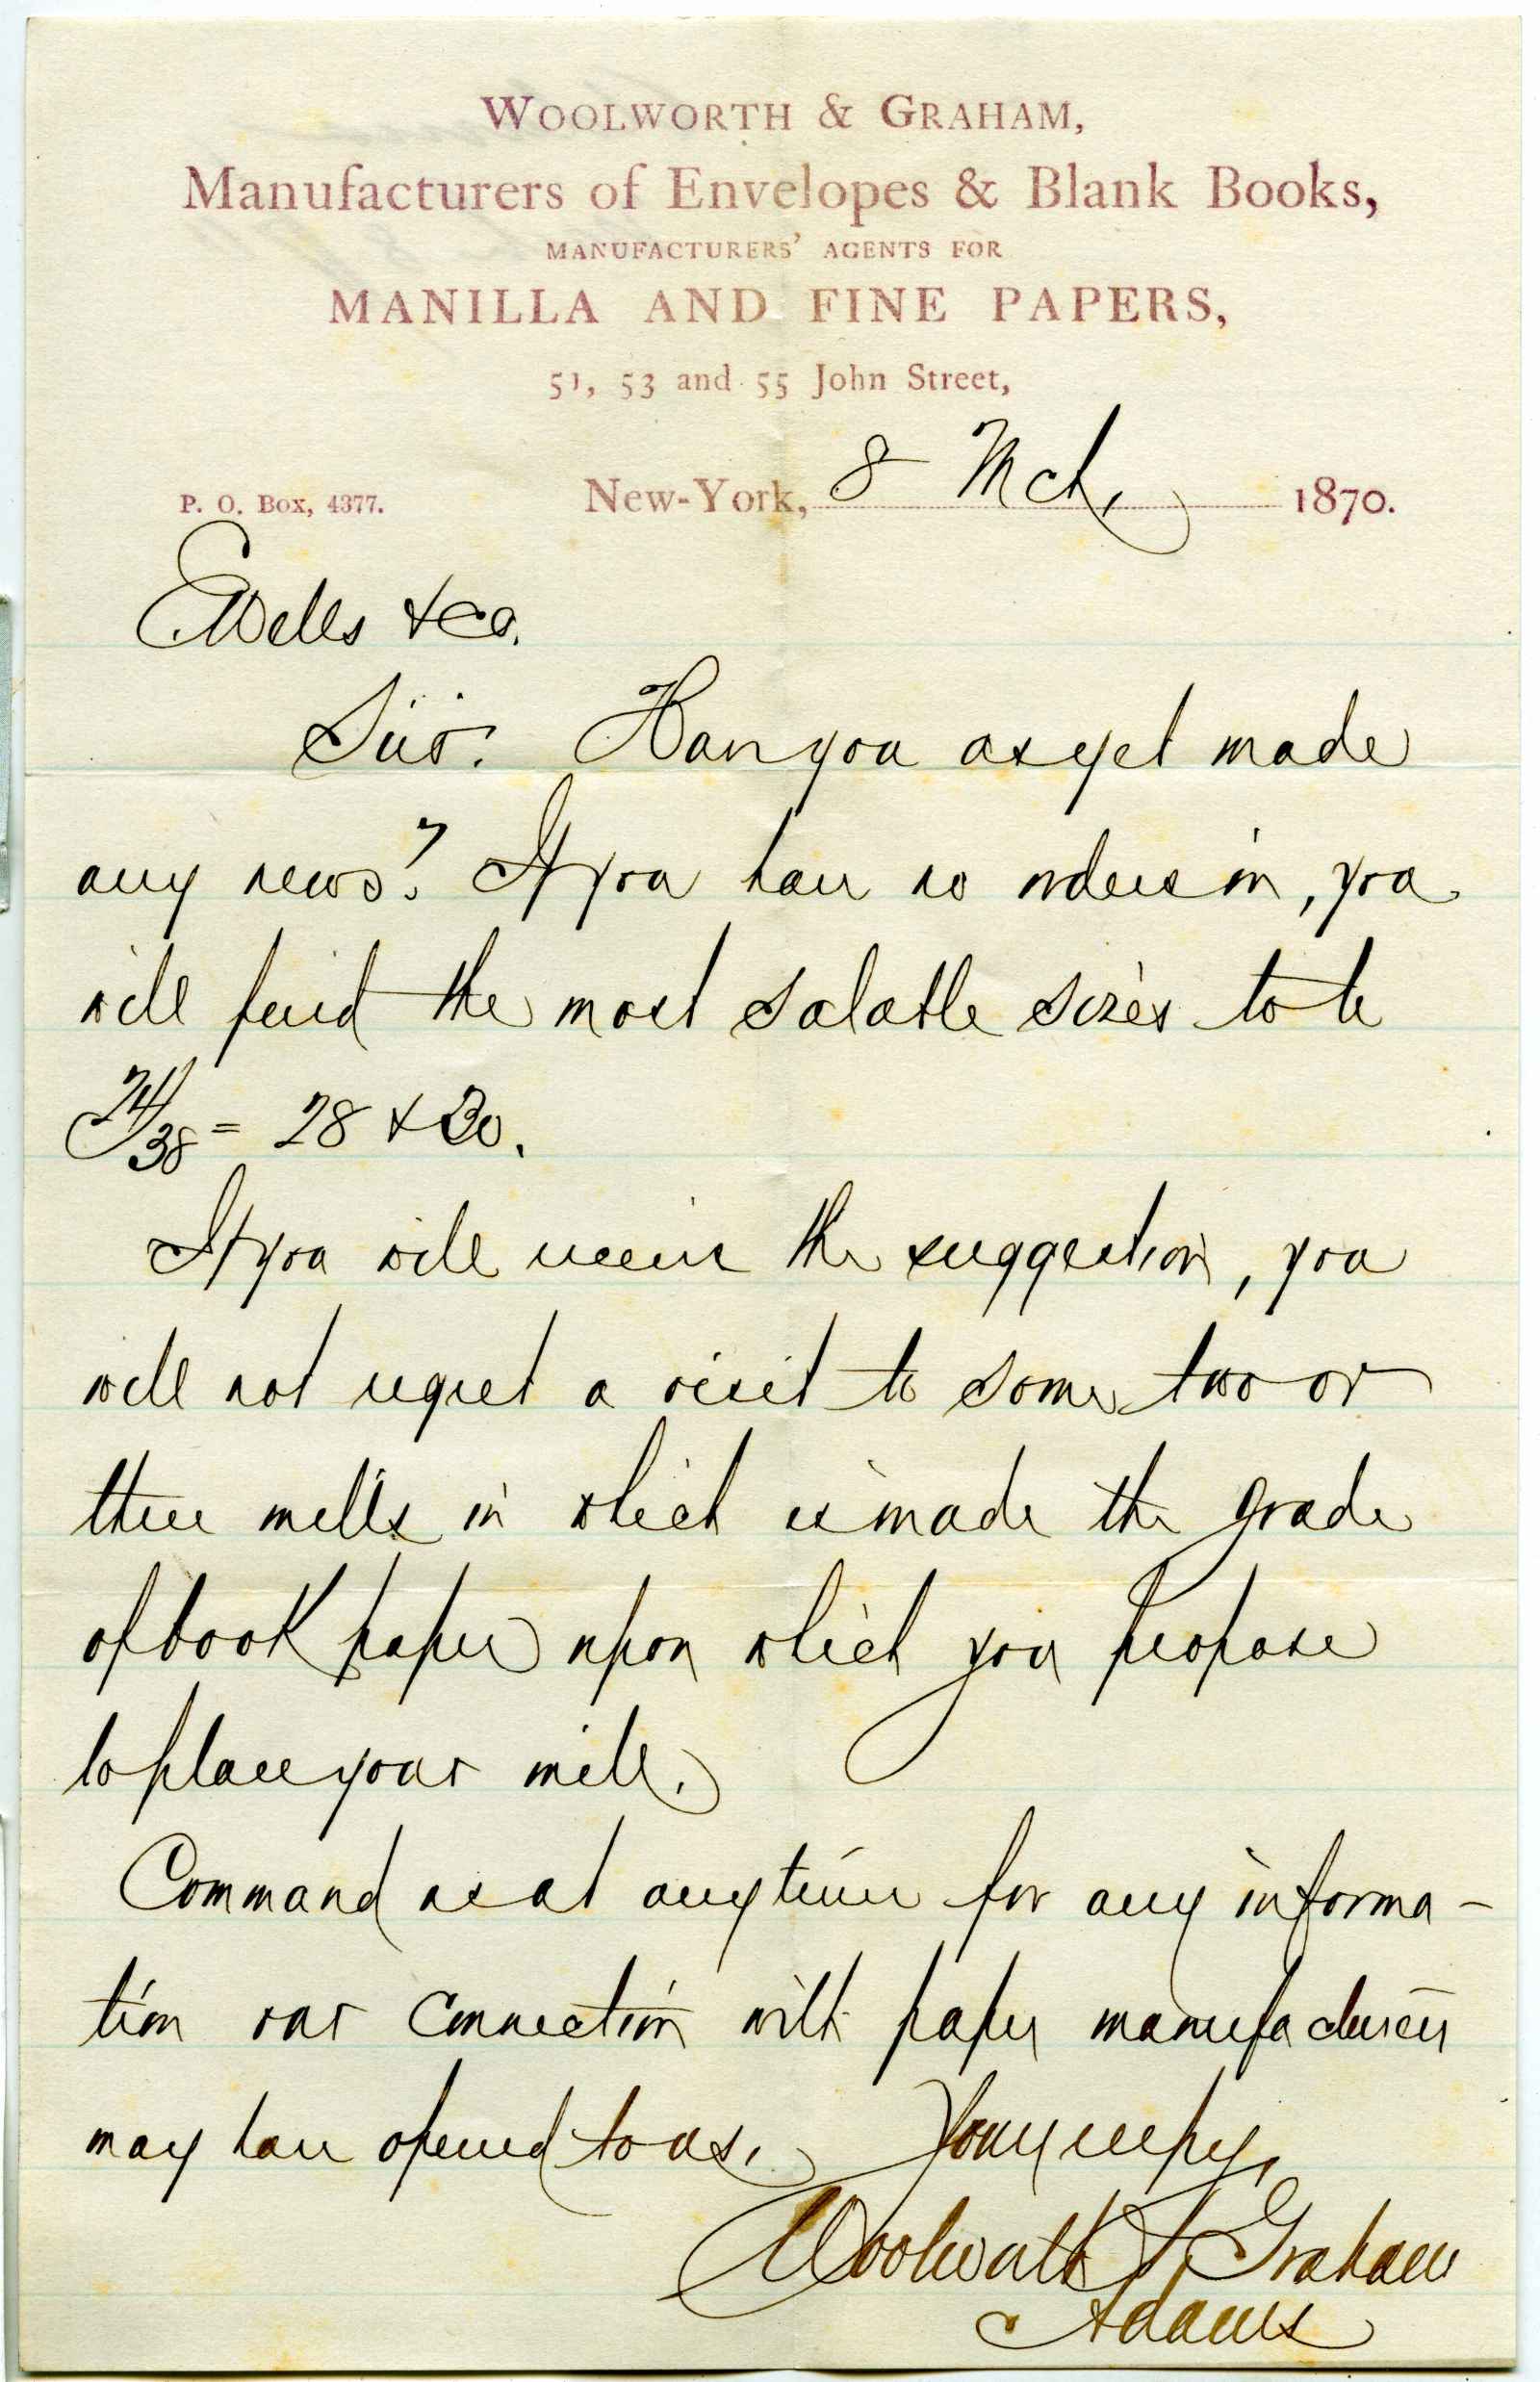 WOOLWORTH & GRAHAM,
Manufacturers of Envelopes & Blank Books,
MANUFACTURERS' AGENTS FOR
MANILLA AND FINE PAPERS,
51, 53 and 55 John Street,
P. O. Box, 4377. New-York, 8 Mch, 1870.
E Wells & Co.
Sirs. Have you as yet made
any news? If you have no orders in, you
will find the most salable sizes to be
24/38 = 28 & 30.
If you will receive the suggestion, you
will not regret a visit to some two or
three mills in which is made the grade
of book paper upon which you propose
to place your mill.
Command us at any time for any informa-
tion our connection with paper manufacturers
may have opened to us. Yours respy,
Woolworth & Graham
Adams